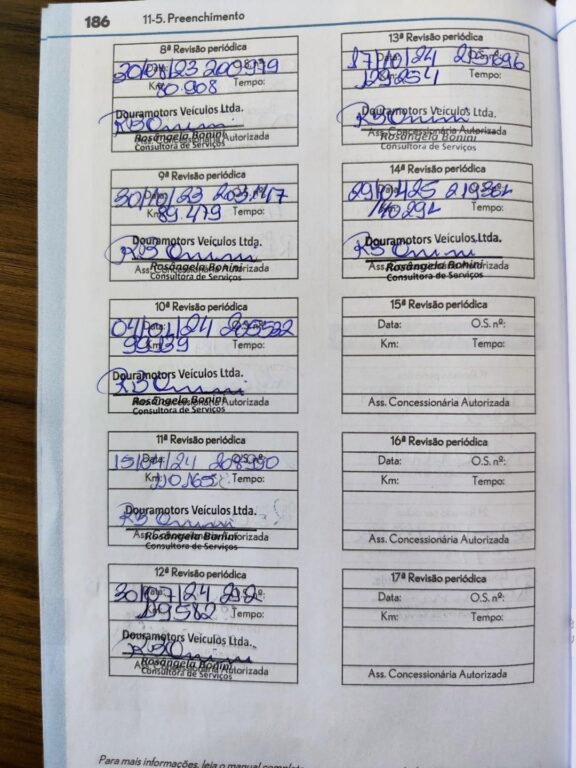 186 11-5. Preenchimento
8ª Revisão periódica
Data: 30/08/23 O.S. nº: 200979
Km: 80.908 Tempo:
Douramotors Veículos Ltda.
Ass. Concessionária Autorizada
Rosângela Bonini
Consultora de Serviços
9ª Revisão periódica
Data: 30/10/23 O.S. nº:
Km: 89.479 Tempo:
Douramotors Veículos Ltda.
Ass. Concessionária Autorizada
Rosângela Bonini
Consultora de Serviços
10ª Revisão periódica
Data: 04/01/24 O.S. nº: 205522
Km: 99939 Tempo:
Douramotors Veículos Ltda.
Rosângela Bonini
Ass. Concessionária Autorizada
Consultora de Serviços
11ª Revisão periódica
Data: 15/04/24 O.S. nº: 208990
Km: 110.165 Tempo:
Douramotors Veículos Ltda.
Ass. Concessionária Autorizada
Rosângela Bonini
Consultora de Serviços
12ª Revisão periódica
Data: 30/07/24 O.S. nº:
Km: 119.582 Tempo:
Douramotors Veículos Ltda.
Rosângela Bonini
Ass. Concessionária Autorizada
Consultora de Serviços
13ª Revisão periódica
Data: 17/10/24 O.S. nº: 215696
Km: 129254 Tempo:
Douramotors Veículos Ltda.
Ass. Concessionária Autorizada
Rosângela Bonini
Consultora de Serviços
14ª Revisão periódica
Data: O.S. nº:
Km: 140291 Tempo:
Douramotors Veículos Ltda.
Ass. Concessionária Autorizada
Rosângela Bonini
Consultora de Serviços
15ª Revisão periódica
Data: O.S. nº:
Km: Tempo:
Ass. Concessionária Autorizada
16ª Revisão periódica
Data: O.S. nº:
Km: Tempo:
Ass. Concessionária Autorizada
17ª Revisão periódica
Data: O.S. nº:
Km: Tempo:
Ass. Concessionária Autorizada
Para mais informações, leia o manual